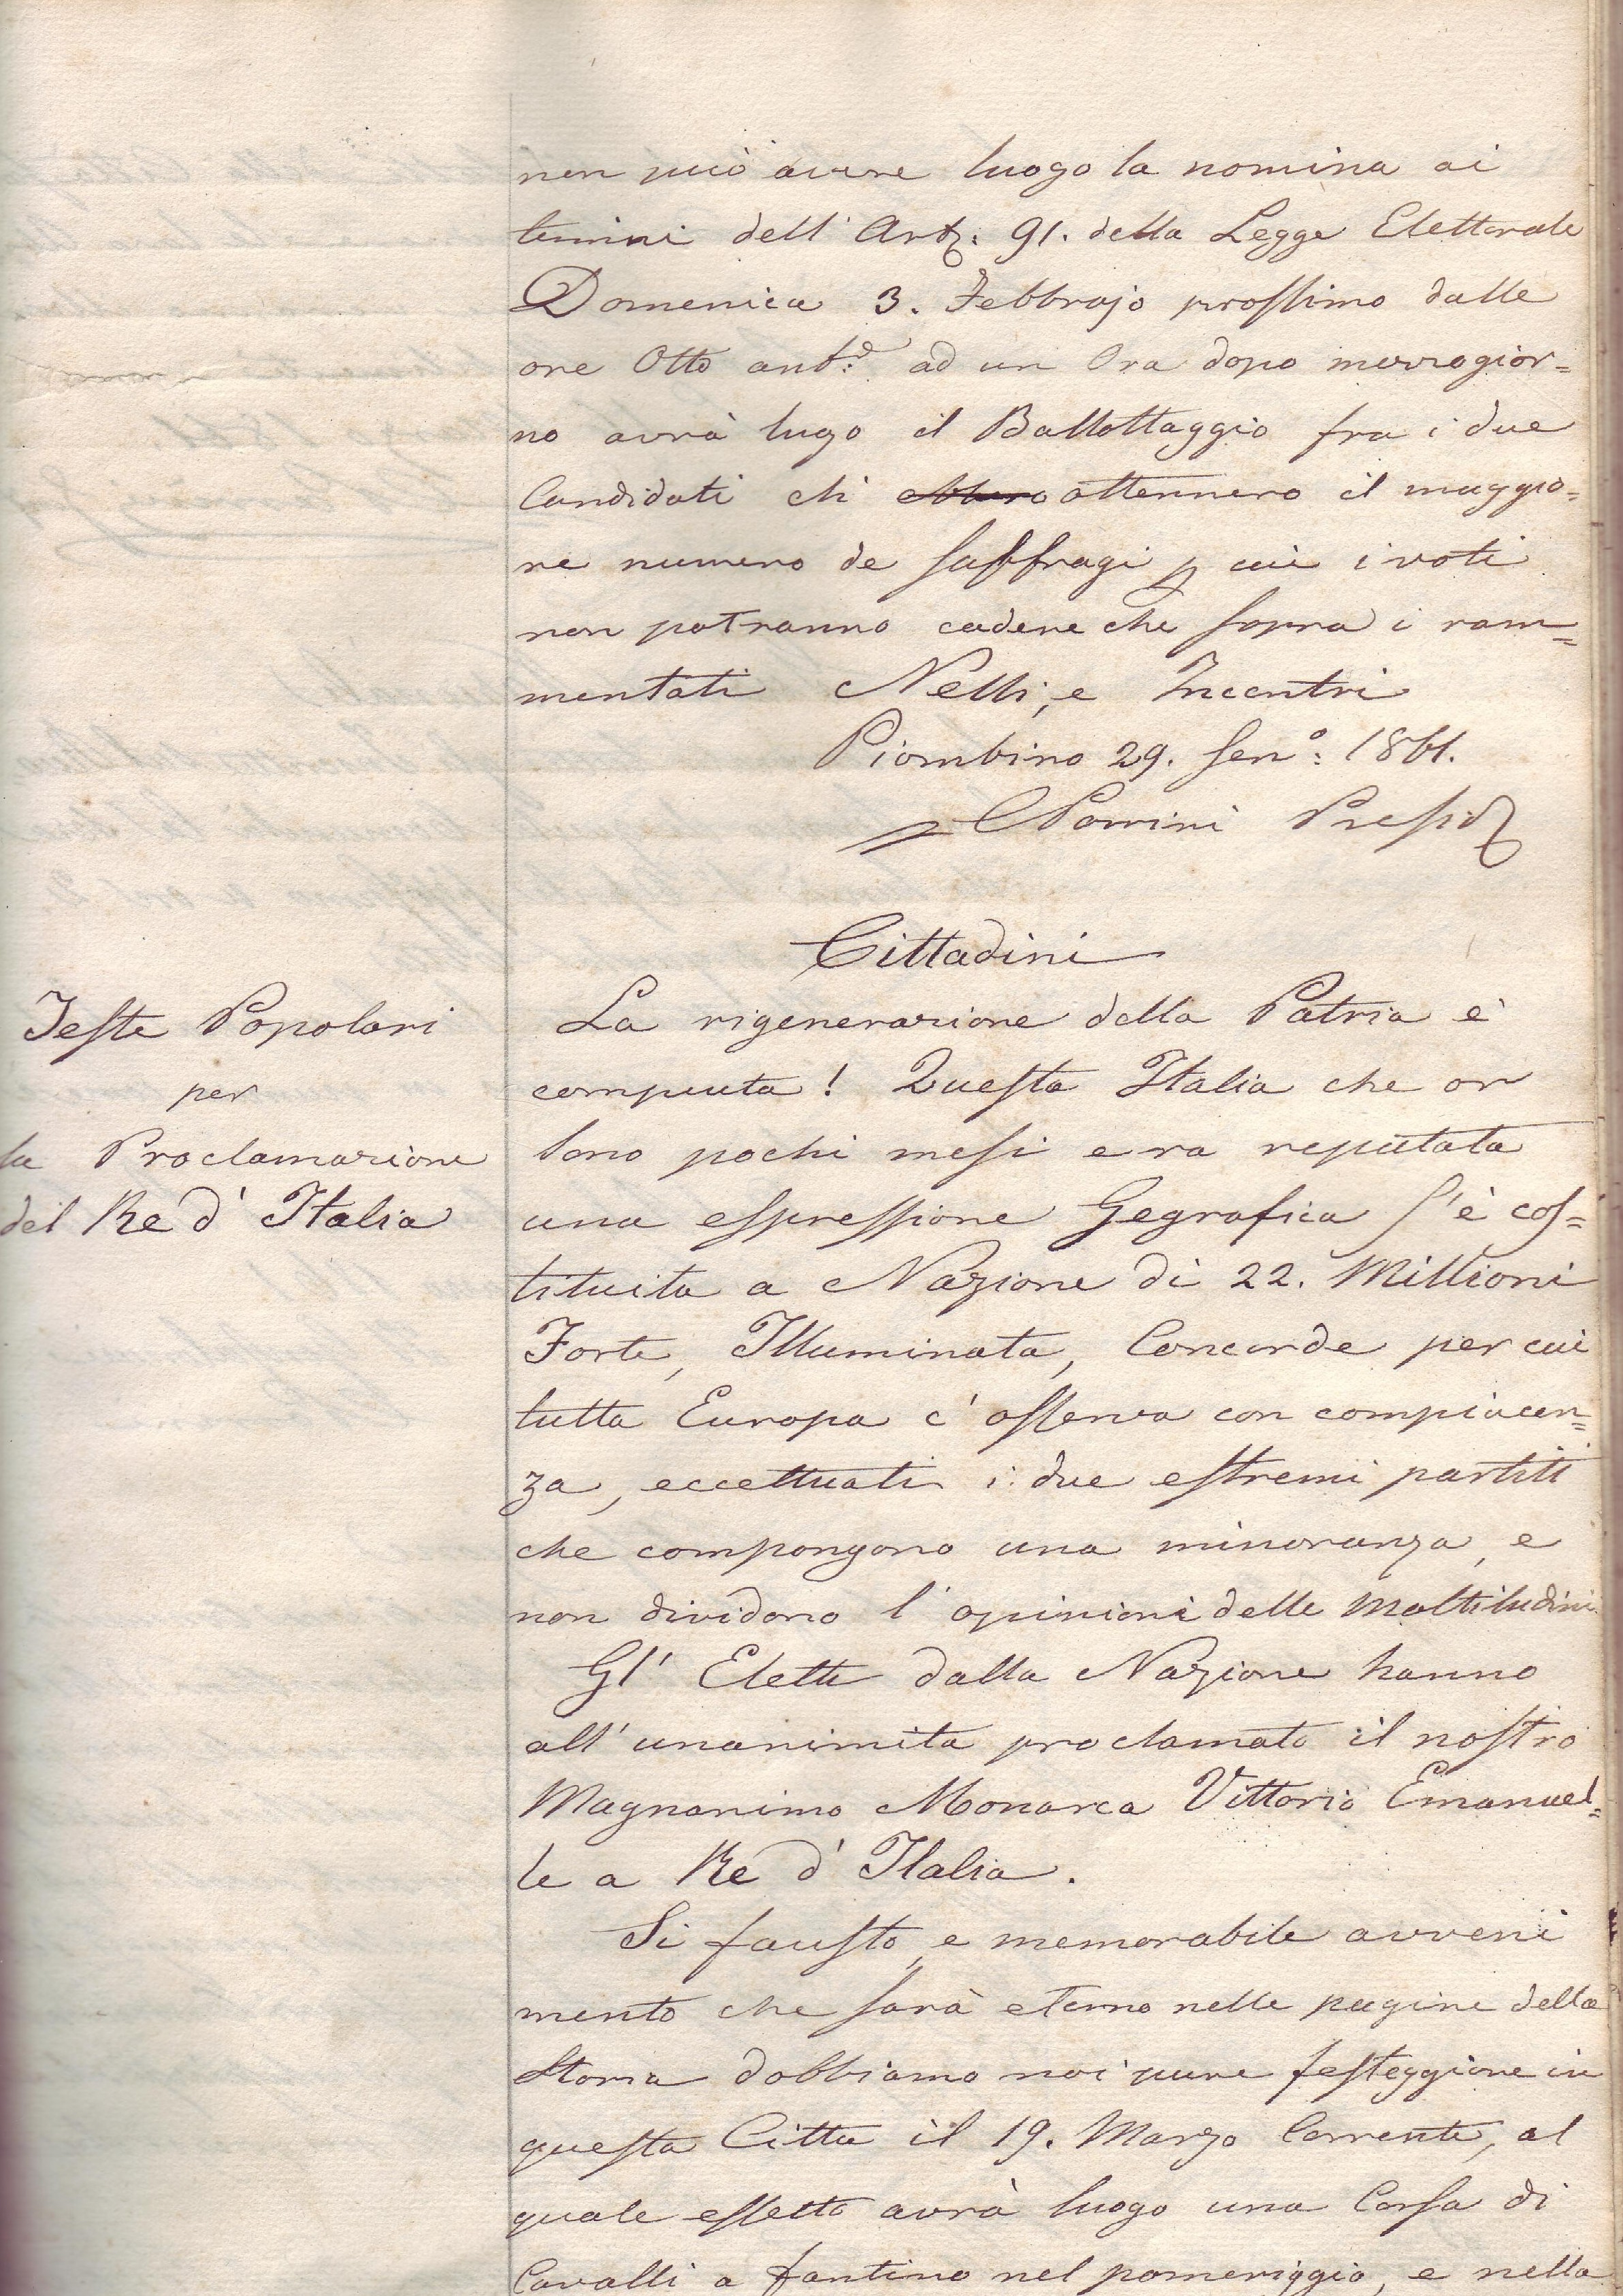 non può avere luogo la nomina ai
termini dell' Art: 91. della Legge Elettorale
Domenica 3. Febbrajo prossimo dalle
ore Otto ant:e ad un Ora dopo mezzogior=
no avrà lugo il Ballottaggio fra i due
Candidati chi ebbero ottennero il maggio=
re numero de suffragi p cui i voti
non potranno cadere che sopra i ram=
mentati Nelli, e Incontri
Piombino 29. Gen°: 1861.
Porrini Presid
Cittadini
Feste Popolari
per
la Proclamazione
del Re d' Italia
La rigenerazione della Patria è
compiuta! Questa Italia che or
sono pochi mesi era reputata
una espressione Gegrafica s'è cos=
tituita a Nazione di 22. Millioni
Forte, Illuminata, Concorde per cui
tutta Europa c' osserva con compiacen=
za, eccettuati i due estremi partiti
che compongono una minoranza, e
non dividono l' opinioni delle Moltitudini.
Gl' Eletti dalla Nazione hanno
all' unanimita proclamato il nostro
Magnanimo Monarca Vittorio Emanuel=
le a Re d' Italia.
Si fausto, e memorabile avveni
mento che sarà eterno nelle pagine della
Storia dobbiamo noi pure festeggiare in
questa Citta il 19. Marzo Corrente, al
quale effetto avrà luogo una Corsa di
Cavalli a fantino nel pomeriggio, e nella